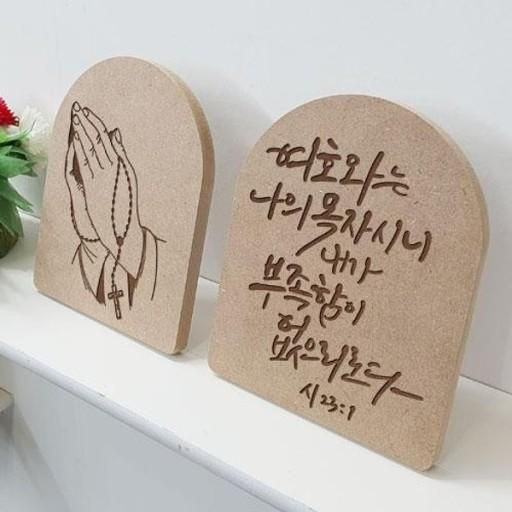 여호와는
나의 목자시니
내가
부족함이
없으리로다
시 23:1